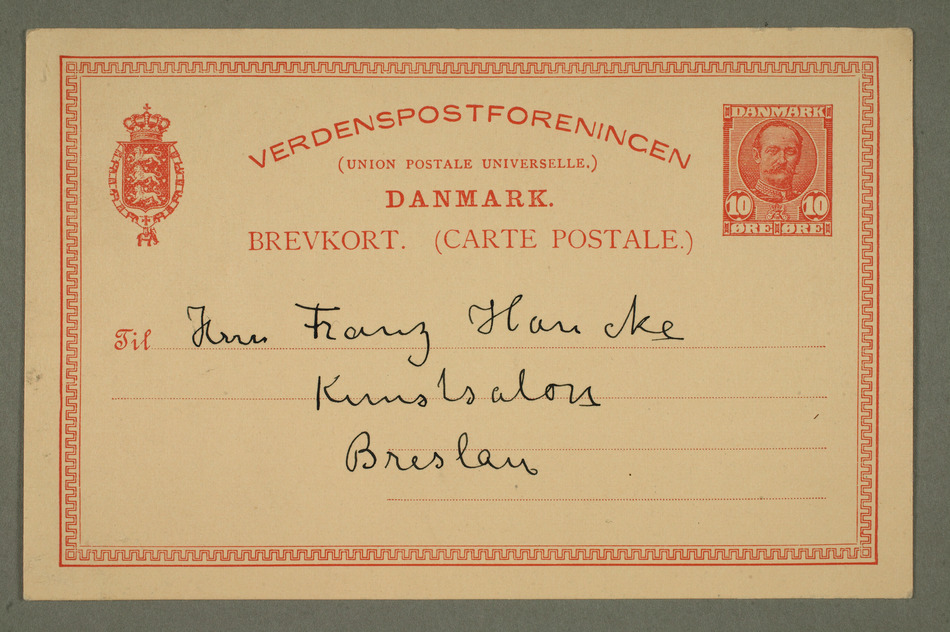 VERDENSPOSTFORENINGEN
(UNION POSTALE UNIVERSELLE.)
DANMARK.
BREVKORT. (CARTE POSTALE.)
DANMARK
10 10
ØRE ØRE
Til Herrn Franz Hancke
Kunstsalon
Breslau